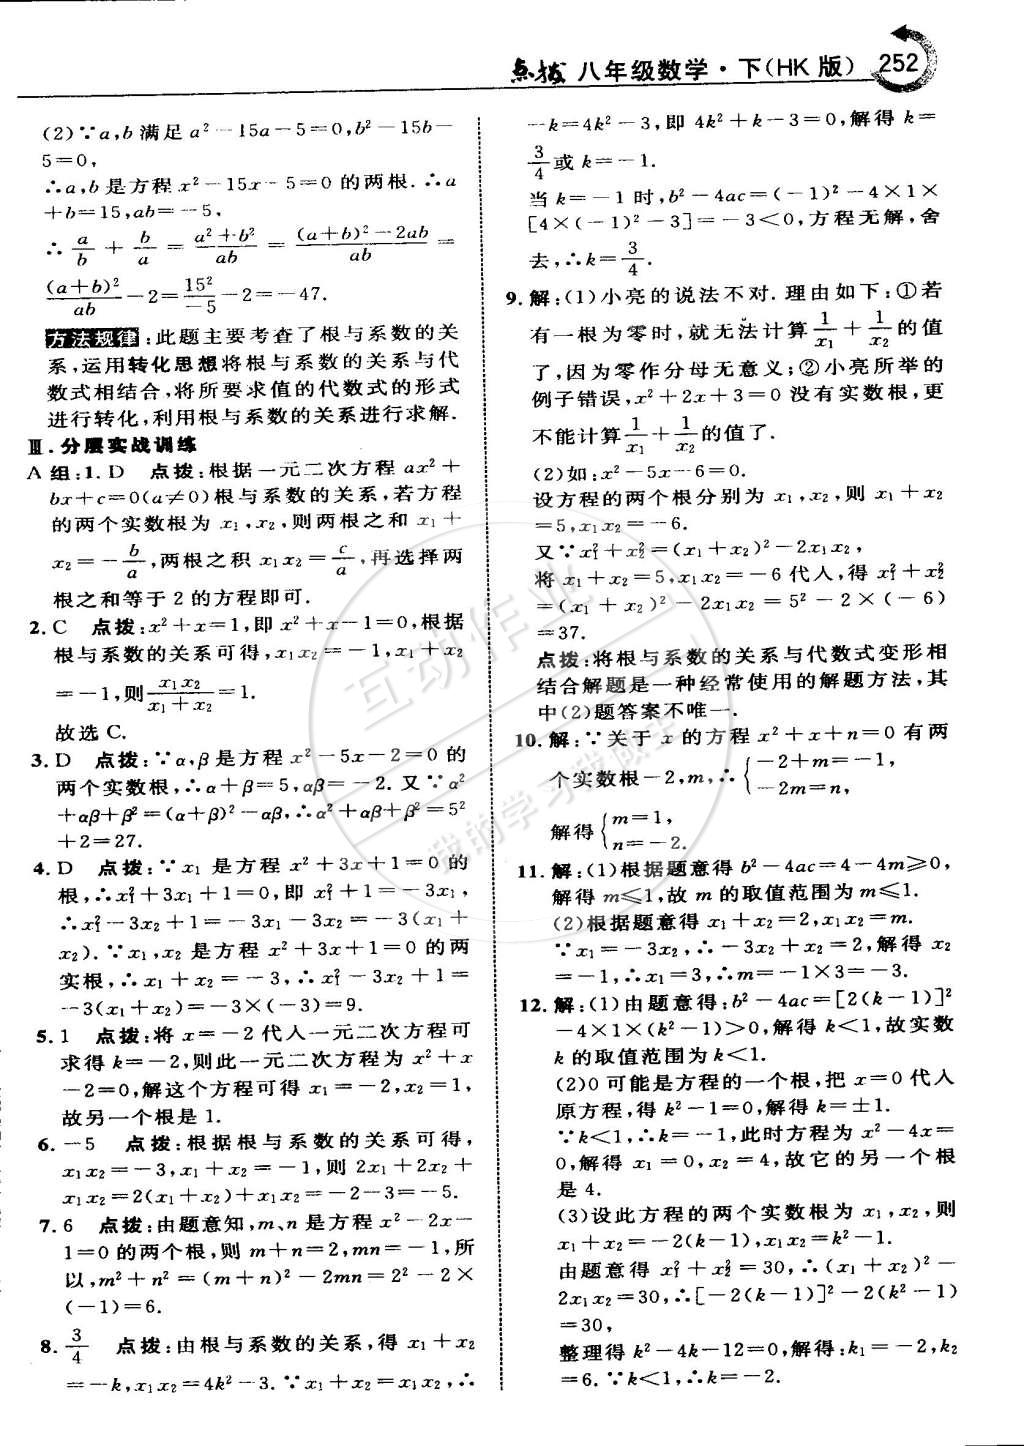 点拨 八年级数学·下(HK版) 252
(2)∵a,b满足a²－15a－5＝0,b²－15b－
5＝0,
∴a,b是方程x²－15x－5＝0的两根.∴a
＋b＝15,ab＝－5,
∴a/b＋b/a＝(a²＋b²)/ab＝((a＋b)²－2ab)/ab＝
(a＋b)²/ab－2＝15²/－5－2＝－47.
方法规律:此题主要考查了根与系数的关
系,运用转化思想将根与系数的关系与代
数式相结合,将所要求值的代数式的形式
进行转化,利用根与系数的关系进行求解.
Ⅲ.分层实战训练
A组:1.D 点拨:根据一元二次方程ax²＋
bx＋c＝0(a≠0)根与系数的关系,若方程
的两个实数根为x₁,x₂,则两根之和x₁＋
x₂＝－b/a,两根之积x₁x₂＝c/a,再选择两
根之和等于2的方程即可.
2.C 点拨:x²＋x＝1,即x²＋x－1＝0,根据
根与系数的关系可得,x₁x₂＝－1,x₁＋x₂
＝－1,则x₁x₂/(x₁＋x₂)＝1.
故选C.
3.D 点拨:∵α,β是方程x²－5x－2＝0的
两个实数根,∴α＋β＝5,αβ＝－2.又∵α²
＋αβ＋β²＝(α＋β)²－αβ,∴α²＋αβ＋β²＝5²
＋2＝27.
4.D 点拨:∵x₁是方程x²＋3x＋1＝0的
根,∴x₁²＋3x₁＋1＝0,即x₁²＋1＝－3x₁,
∴x₁²－3x₂＋1＝－3x₁－3x₂＝－3(x₁＋
x₂).∵x₁,x₂是方程x²＋3x＋1＝0的两
实根,∴x₁＋x₂＝－3,∴x₁²－3x₂＋1＝
－3(x₁＋x₂)＝－3×(－3)＝9.
5.1 点拨:将x＝－2代入一元二次方程可
求得k＝－2,则此一元二次方程为x²＋x
－2＝0,解这个方程可得x₁＝－2,x₂＝1,
故另一个根是1.
6.－5 点拨:根据根与系数的关系可得,
x₁x₂＝－3,x₁＋x₂＝－1,则2x₁＋2x₂＋
x₁x₂＝2(x₁＋x₂)＋x₁x₂＝－2－3＝－5.
7.6 点拨:由题意知,m、n是方程x²－2x－
1＝0的两个根,则m＋n＝2,mn＝－1,所
以,m²＋n²＝(m＋n)²－2mn＝2²－2×
(－1)＝6.
8.3/4 点拨:由根与系数的关系,得x₁＋x₂
＝－k,x₁x₂＝4k²－3.∵x₁＋x₂＝x₁x₂,∴
－k＝4k²－3,即4k²＋k－3＝0,解得k＝
3/4或k＝－1.
当k＝－1时,b²－4ac＝(－1)²－4×1×
[4×(－1)²－3]＝－3＜0,方程无解,舍
去,∴k＝3/4.
9.解:(1)小亮的说法不对.理由如下:①若
有一根为零时,就无法计算1/x₁＋1/x₂的值
了,因为零作分母无意义;②小亮所举的
例子错误,x²＋2x＋3＝0没有实数根,更
不能计算1/x₁＋1/x₂的值了.
(2)如:x²－5x－6＝0.
设方程的两个根分别为x₁,x₂,则x₁＋x₂
＝5,x₁x₂＝－6.
又∵x₁²＋x₂²＝(x₁＋x₂)²－2x₁x₂,
将x₁＋x₂＝5,x₁x₂＝－6代入,得x₁²＋x₂²
＝(x₁＋x₂)²－2x₁x₂＝5²－2×(－6)
＝37.
点拨:将根与系数的关系与代数式变形相
结合解题是一种经常使用的解题方法,其
中(2)题答案不唯一.
10.解:∵关于x的方程x²＋x＋n＝0有两
个实数根－2,m,∴{－2＋m＝－1,
－2m＝n,
解得{m＝1,
n＝－2.
11.解:(1)根据题意得b²－4ac＝4－4m≥0,
解得m≤1,故m的取值范围为m≤1.
(2)根据题意得x₁＋x₂＝2,x₁x₂＝m.
∵x₁＝－3x₂,∴－3x₂＋x₂＝2,解得x₂
＝－1,∴x₁＝3,∴m＝－1×3＝－3.
12.解:(1)由题意得:b²－4ac＝[2(k－1)]²
－4×1×(k²－1)＞0,解得k＜1,故实数
k的取值范围为k＜1.
(2)0可能是方程的一个根,把x＝0代入
原方程,得k²－1＝0,解得k＝±1.
∵k＜1,∴k＝－1,此时方程为x²－4x＝
0,解得x₁＝0,x₂＝4,故它的另一个根
是4.
(3)设此方程的两个实数根为x₁,x₂,则
x₁＋x₂＝－2(k－1),x₁x₂＝k²－1.
由题意得x₁²＋x₂²＝30,∴(x₁＋x₂)²－
2x₁x₂＝30,∴[－2(k－1)]²－2(k²－1)
＝30,
整理得k²－4k－12＝0,解得:k₁＝－2,k₂
＝6.∵k＜1,∴k＝－2.
互动作业